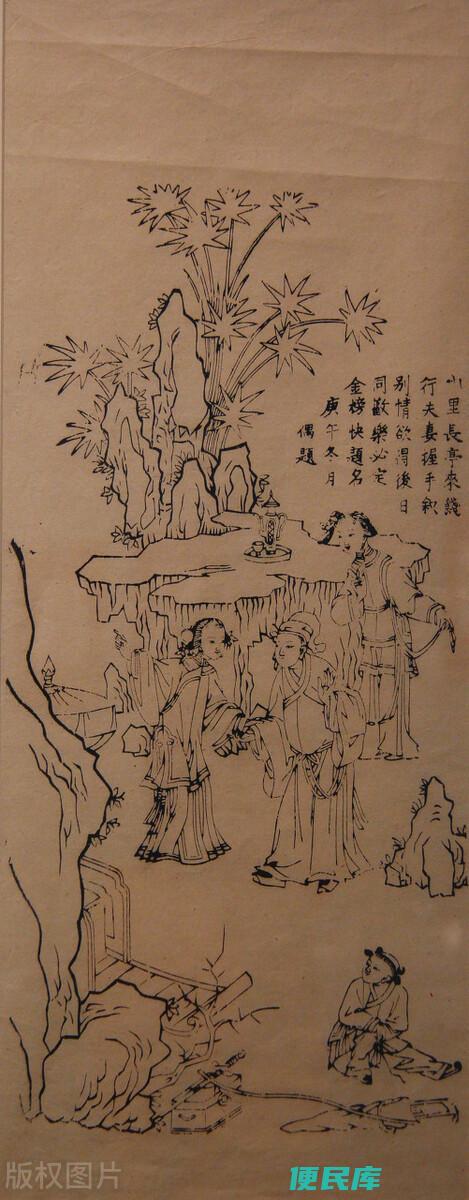 小里長亭來餞
行夫妻握手叙
別情欲得後日
同歡樂必定
金榜快題名
庚午冬月
偶題
版权图片
便民库